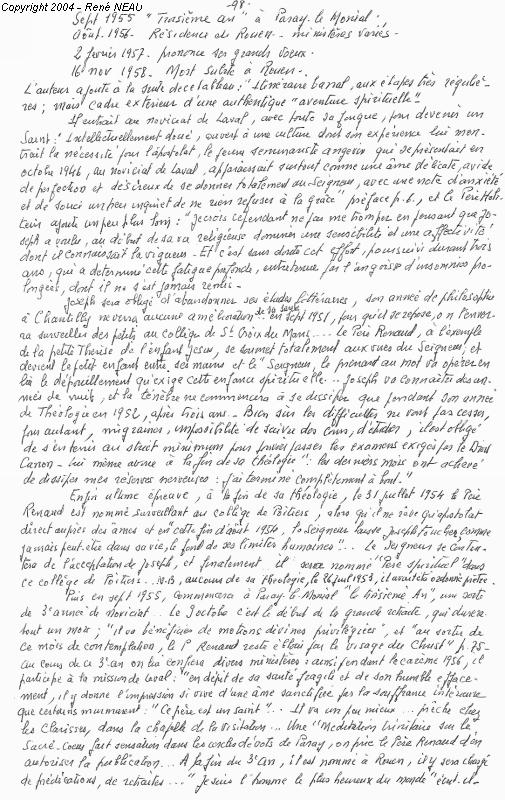 Copyright 2004 - René NEAU
-98-
Sept 1955 "Troisième an" à Paray-le Monial.
Août 1956. Résidence de Rouen - ministères variés.
2 février 1957. prononce ses grands voeux.
16 nov 1958. Mort subite à Rouen.
L'auteur ajoute à la suite de ce tableau: "Itinéraire banal, aux étapes très réguliè-
res; mais cadre extérieur d'une authentique "aventure spirituelle".
Il entrait au noviciat de Laval, avec toute sa fougue, pour devenir un
Saint: "Intellectuellement doué, ouvert à une culture dont son expérience lui mon-
trait la nécessité pour l'apostolat, le jeune séminariste angevin qui se présentait en
octobre 1946, au noviciat de Laval, apparaissait surtout comme une âme délicate, avide
de perfection et désireux de se donner totalement au Seigneur, avec une note d'anxiété
et de souci un peu inquiet de ne rien refuser à la grâce" préface p.6., et le Père
ajoute un peu plus loin: "je crois cependant ne pas me tromper en pensant que Jo-
seph a voulu, au début de sa vie religieuse dominer une sensibilité et une affectivité
dont il connaissait la vigueur - Et c'est sans doute cet effort, poursuivi durant trois
ans, qui a déterminé cette fatigue profonde, entretenue par l'angoisse d'insomnies pro-
longées, dont il ne s'est jamais remis -
Joseph sera obligé d'abandonner ses études littéraires, son année de philosophie
à Chantilly ne verra aucune amélioration de sa santé - en sept 1951, pour qu'il se repose, on l'enver-
ra surveiller des petits au collège de Ste Croix du Mans .... Le Père Renaud, à l'exemple
de la petite Thérèse de l'enfant Jésus, se soumet totalement aux vues du Seigneur, et
devient le petit enfant entre ses mains et le "Seigneur, le prenant au mot va opérer en
lui le dépouillement qu'exige cette enfance spirituelle... Joseph va connaître des an-
nées de nuit, et la ténèbre ne commencera à se dissiper que pendant son année
de Théologie en 1952, après trois ans - Bien sûr les difficultés ne vont pas cesser,
pour autant, migraines, impossibilité de suivre des cours, d'étudier, il est obligé
de s'en tenir au strict minimum pour pouvoir passer les examens exigés par le Droit
Canon - lui même avoue à la fin de sa théologie": les derniers mois ont achevé
de dissiper mes réserves nerveuses: j'ai terminé complètement à bout."
Enfin ultime épreuve, à la fin de sa théologie, le 31 juillet 1954 le Père
Renaud est nommé surveillant au collège de Poitiers, alors qu'il ne rêve qu'apostolat
direct auprès des âmes et en "cette fin d'août 1954, le Seigneur laisse Joseph toucher comme
jamais peut-être dans sa vie, le fond de ses limites humaines"... Le Seigneur se conten-
tera de l'acceptation de Joseph, et finalement il sera nommé Père Spirituel dans
ce collège de Poitiers... au cours de sa Théologie, le 26 juil 1953, il avait été ordonné prêtre.
Puis en sept 1955, commencera à Paray-le Monial "le troisième An", une sorte
de 3e année de noviciat. Le 9 octobre c'est le début de la grande retraite, qui durera
tout un mois; "il va bénéficier de motions divines privilégiées", et "au sortir de
ce mois de contemplation, le P. Renaud reste ébloui par le visage du Christ" p.75-
au cours de ce 3e an on lui confiera divers ministères: ainsi pendant le carême 1956, il
participe à la mission de Laval: "en dépit de sa santé fragile et de son humble efface-
ment, il y donne l'impression si vive d'une âme sanctifiée par la souffrance intérieure
que certains murmurent: "Ce père est un saint"... Il va un peu mieux... prêche chez
les Clarisses, dans la chapelle de la Visitation... Une "Méditation trinitaire sur le
Sacré-Coeur fait sensation dans les cercles dévots de Paray, on prie le Père Renaud d'en
autoriser la publication... A la fin du 3e an, il est nommé à Rouen, il y sera chargé
de prédications, de retraites..." Je suis l'homme le plus heureux du monde" écrit-il-